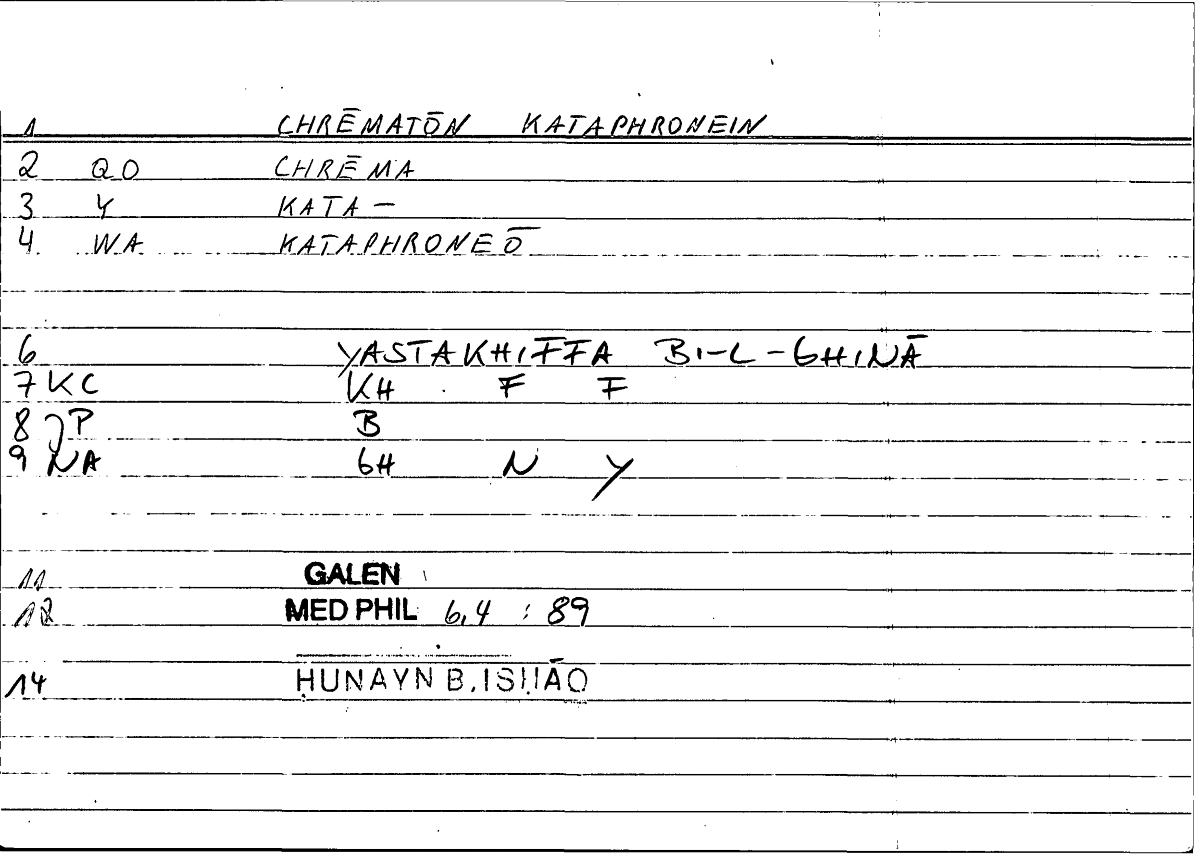 1 CHRĒMATŌN KATAPHRONEIN
2 QO CHRĒMA
3 Y KATA-
4 WA KATAPHRONEŌ
6 YASTAKHIFFA BI-L-GHINĀ
7 KC KH F F
8 JP B
9 NA GH N Y
11 GALEN
12 MED PHIL 6,4 : 89
14 ḤUNAYN B. ISḤĀQ